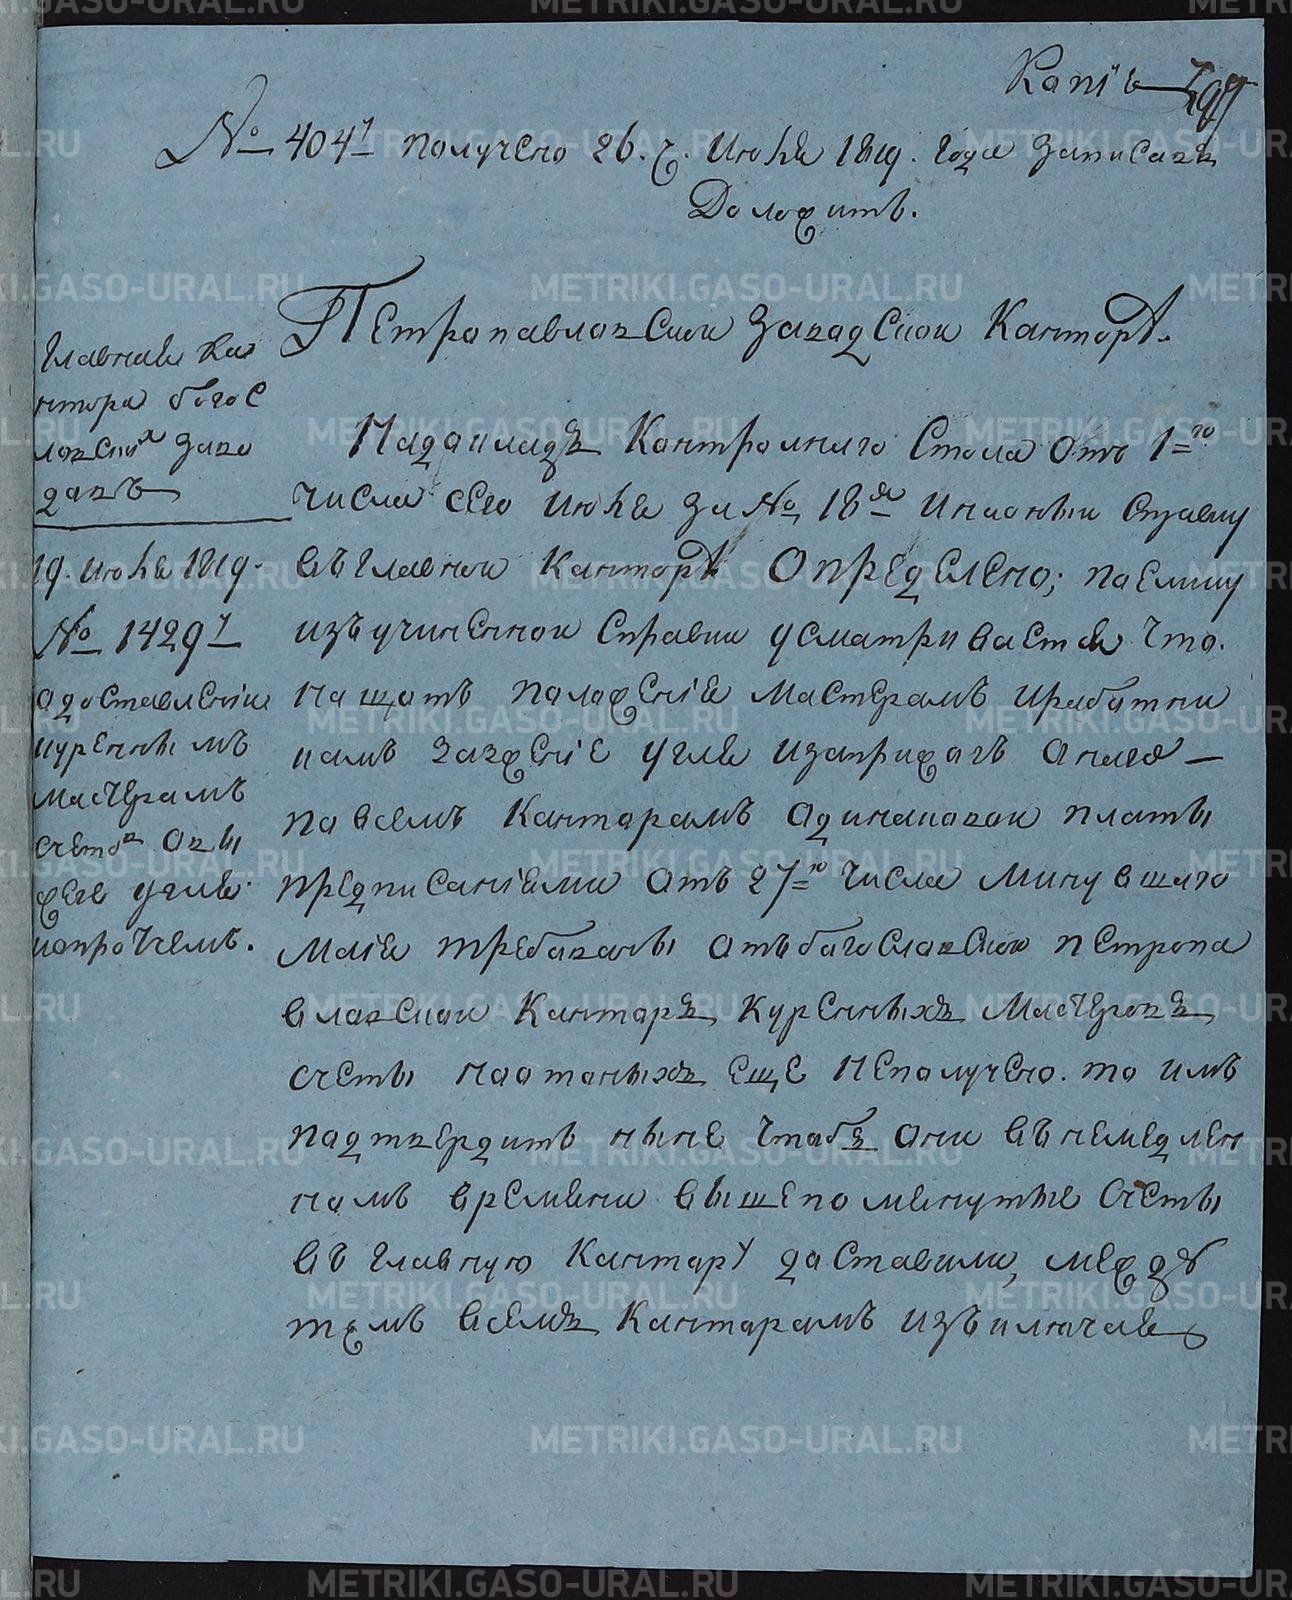 Капiя
№ 404й получено 26. ч. Июня 1819. года записавъ
Доложить.
Петропавловской заводской Канторѣ.
Главная Ка
нтора богос
ловскихъ заво
довъ
19. июня 1819.
№ 1429й
а доставленiи
куреннымъ
мастерамъ
счетов о вы
жеге угля
ипрочемъ.
Па докладу Кантролнаго Стола Отъ 1=го
числа сего июня за № 18мъ Инаоныи Справку
въ главнои Канторѣ Определено; поелику
изъ учиненнои Справки усматриваетса что.
На щотъ положенiе мастерамъ ирабатни
камъ зазжение угля иза
по всемъ Кантарамъ адинаковои платы
предписанiями отъ 27=го числа минувшаго
маiя требованы отъ багословской петропа
вловскои Кантаръ, Куренныхъ мастеровъ
счеты На
ещЕ Неполучено. то имъ
падтвердить ныне чтабъ они въ немедлен
намъ времени вышепомянутые счеты
въ главную Кантару даставили, между
тѣмъ всемъ Кантарамъ изъ
METRIKI.GASO-URAL.RU